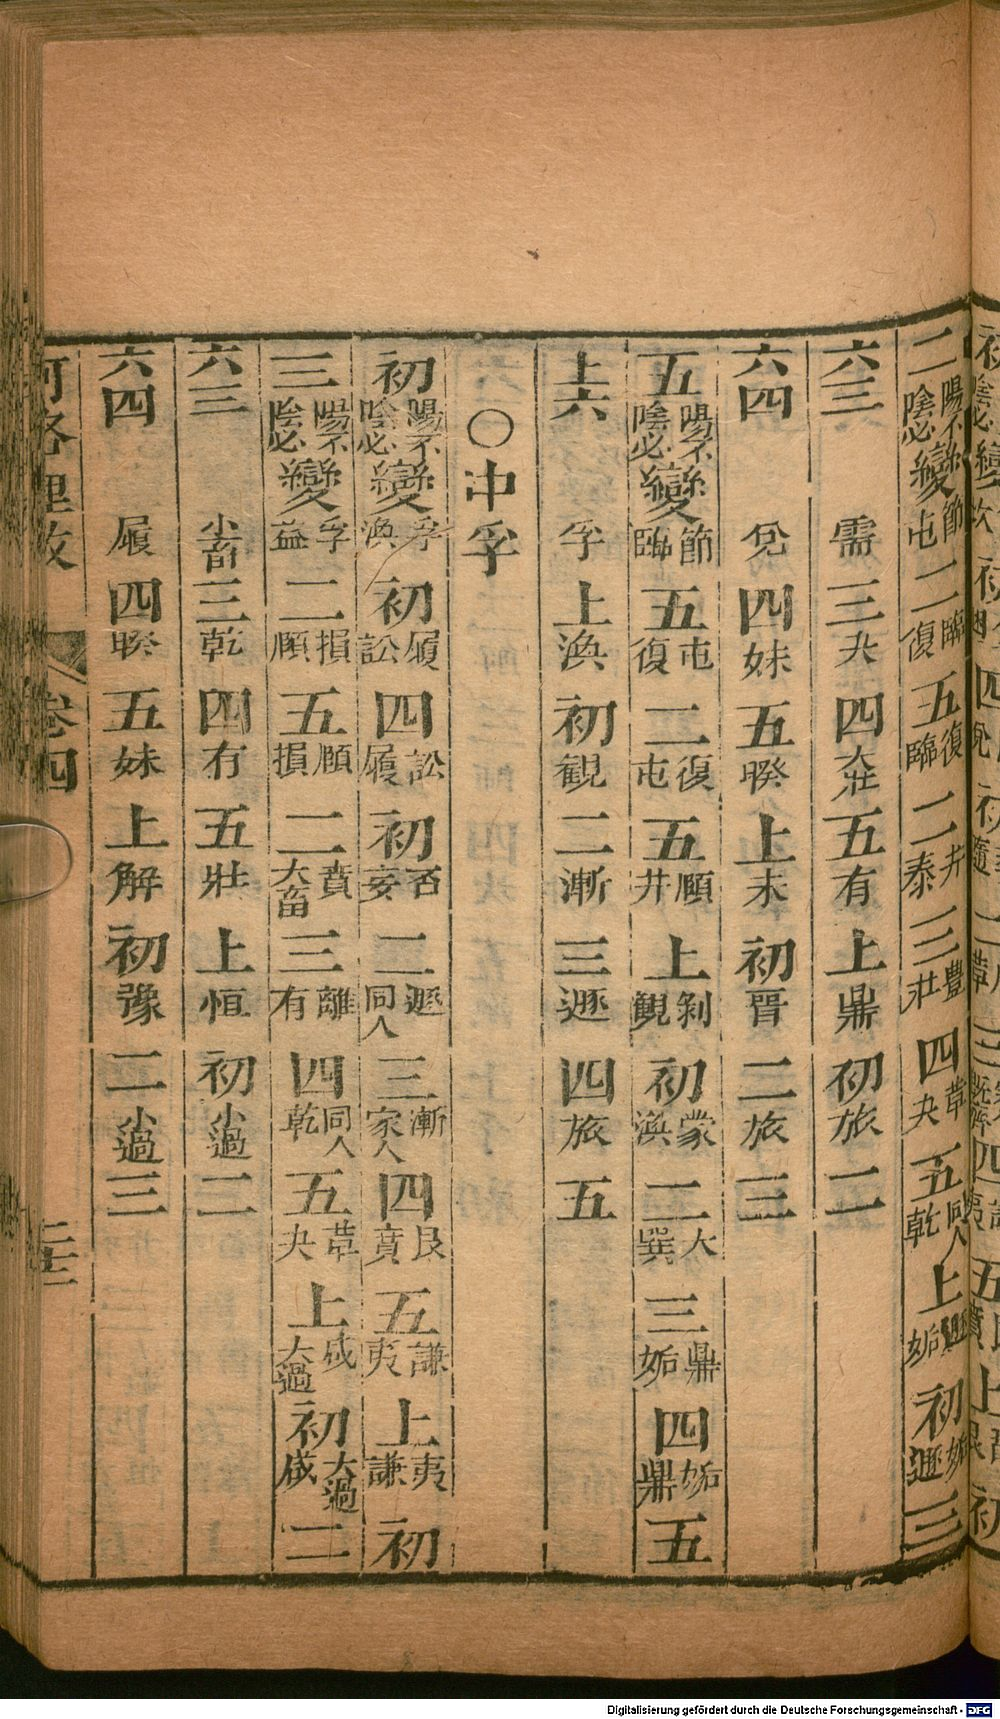 二陽不陰必變節屯二臨復五復臨二井泰三豐壯四革夬五同人乾上遯姤初姤遯三
六三需三夬四大壯五有上鼎初旅二
六四兌四妹五睽上未初晉二旅三
五陽不陰必變節臨五屯復二復屯五頤井上剝觀初蒙渙二大巽三鼎姤四姤鼎五
上六孚上渙初觀二漸三遯四旅五
○中孚
初陽不陰必變孚渙初履訟四訟履初否妄二遯同人三漸家人四艮賁五謙夷上夷謙初
三陽不陰必變孚益二損頤五頤損二賁大畜三離有四同人乾五革夬上咸大過初大過咸二
六三小畜三乾四有五壯上恒初小過二
六四履四睽五妹上解初豫二小過三
河洛理数 卷四
Digitalisierung gefördert durch die Deutsche Forschungsgemeinschaft - DFG